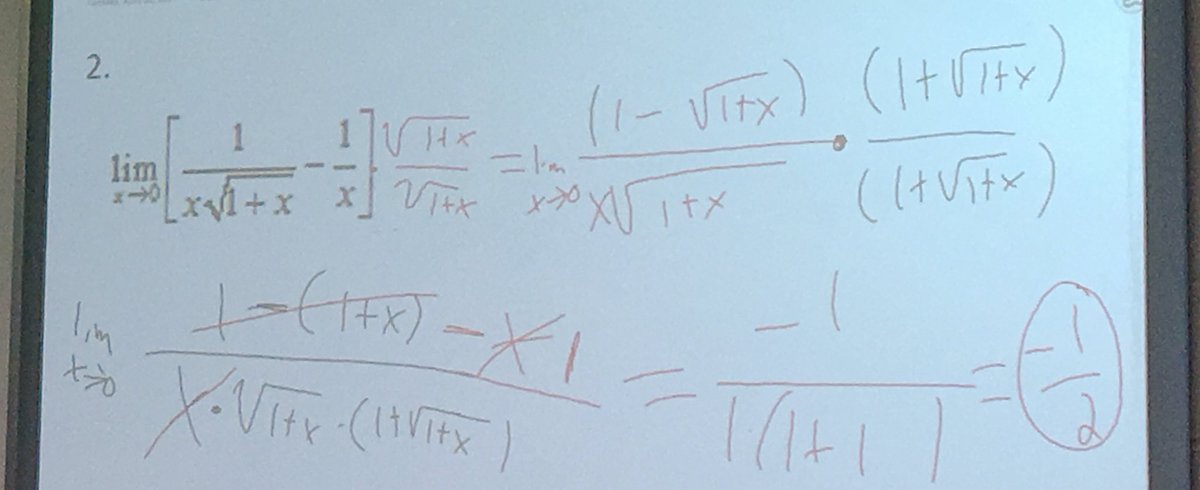 2.
lim x→0 [ 1/(x√(1+x)) − 1/x ] · √(1+x)/√(1+x) = lim x→0 (1 − √(1+x))/(x√(1+x)) · (1 + √(1+x))/(1 + √(1+x))
lim x→0 (1 − (1+x) − x 1)/(x · √(1+x) · (1+√(1+x))) = −1/(1(1+1)) = −1/2